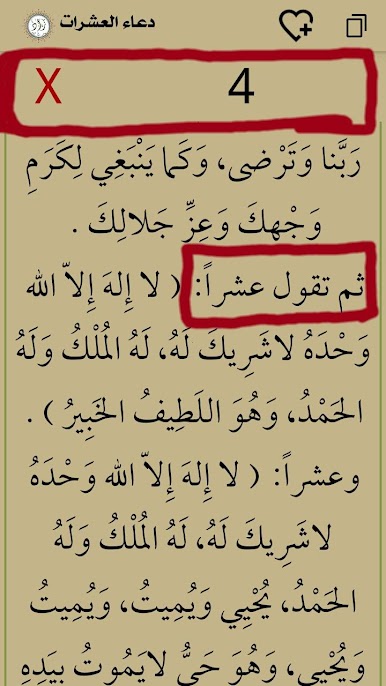 دعاء العشرات
X 4
رَبَّنا وَتَرْضى، وَكَما يَنْبَغِي لِكَرَمِ
وَجْهِكَ وَعِزِّ جَلالِكَ .
ثم تقول عشراً: ( لا إِلهَ إِلاّ الله
وَحْدَهُ لاشَرِيكَ لَهُ، لَهُ المُلْكُ وَلَهُ
الحَمْدُ، وَهُوَ اللَطِيفُ الخَبِيرُ ) .
وعشراً: ( لا إِلهَ إِلاّ الله وَحْدَهُ
لاشَرِيكَ لَهُ، لَهُ المُلْكُ وَلَهُ
الحَمْدُ، يُحْيِي وَيُمِيتُ، وَيُمِيتُ
وَيُحْيِي، وَهُوَ حَيُّ لايَمُوتُ بِيَدِهِ